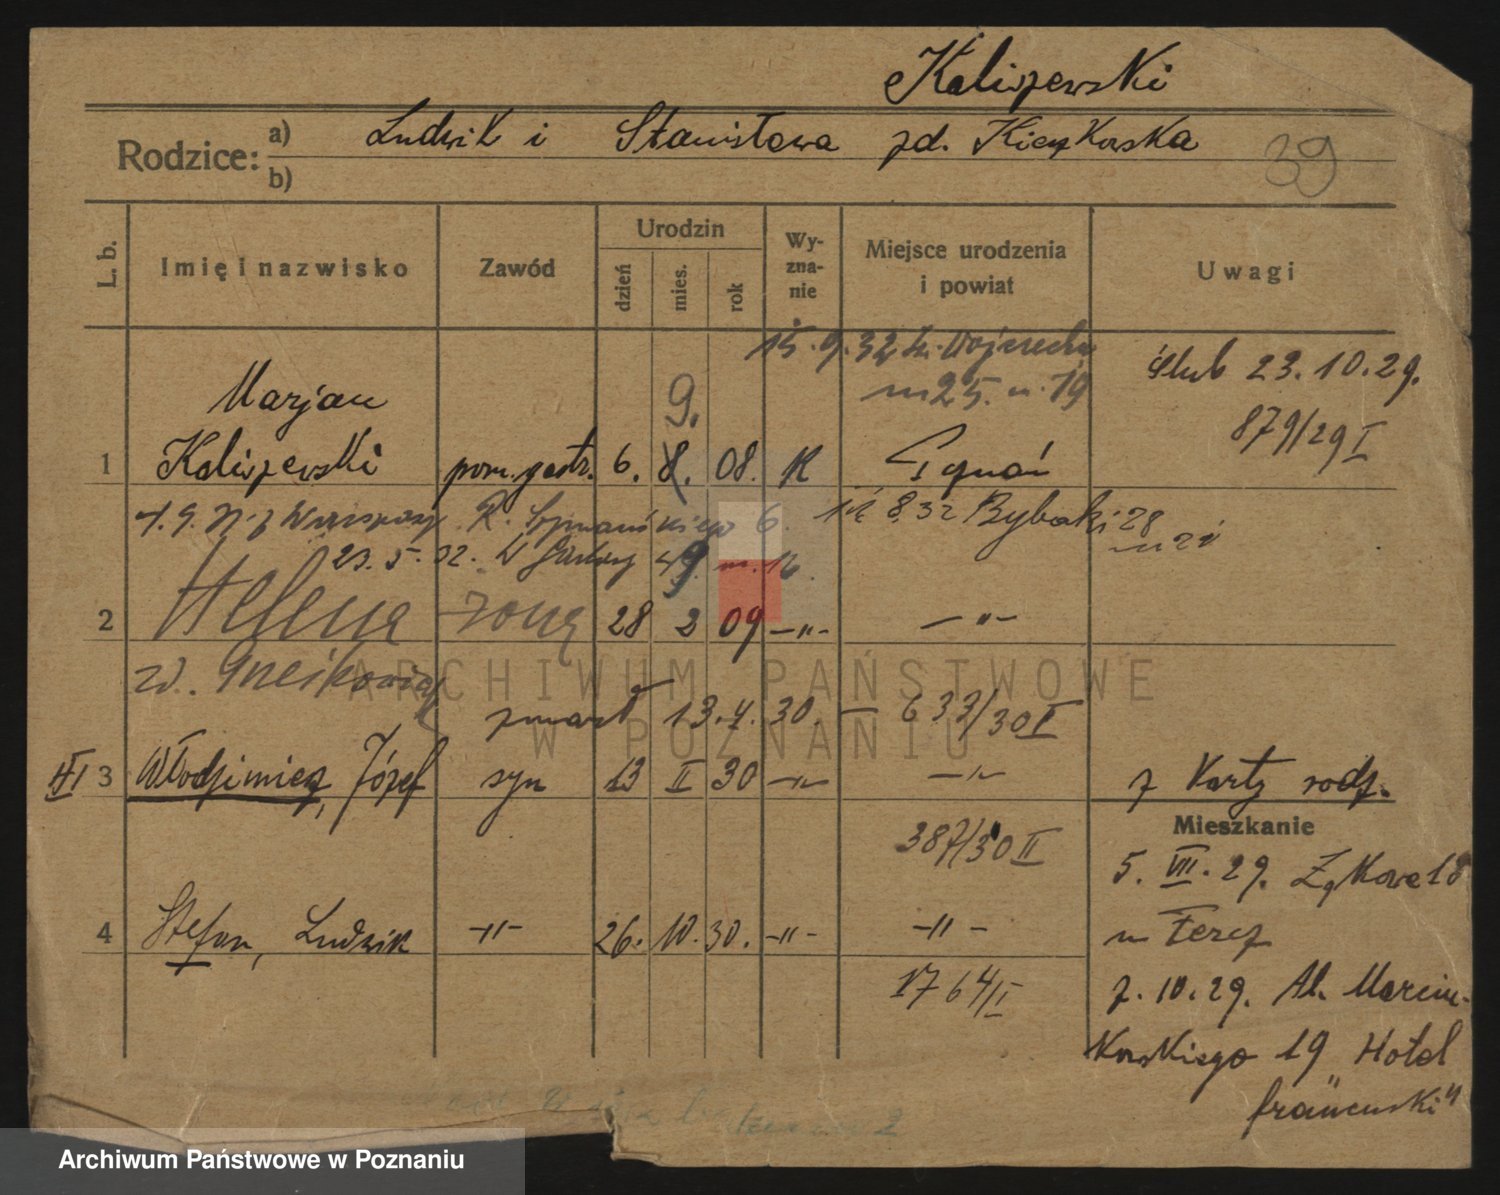 Kaliszewski
Rodzice: a) Ludwik i Stanisława zd. Kieczkowska
b)
39
L. b.
Imię i nazwisko
Zawód
Urodzin
dzień
mies.
rok
Wy-
zna-
nie
Miejsce urodzenia
i powiat
Uwagi
15.9.32 Św. Wojciecha
m 25. m. 19
ślub 23.10.29.
879/29 I
Marjan
9.
1 Kaliszewski pom. gastr. 6. 8. 08. K Poznań
8.32 Rybaki 28
23.5.32. W Garbary 49 m. 16.
2 Helena żona 28 2 09 -"- -"-
zd.
zmarł 13.4.30. - 633/30 I
3 Włodzimierz, Józef syn 13 II 30 -"- -"- z Karty rodz.
387/30 II
Mieszkanie
5. VII. 29.
4 Stefan, Ludwik -"- 26. 10. 30. -"- -"-
1764/I
7.10.29. Al. Marcin-
kowskiego 19 Hotel
"francuski"
ARCHIWUM PAŃSTWOWE
W POZNANIU
Archiwum Państwowe w Poznaniu